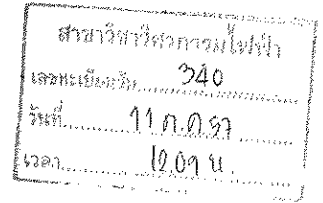 สาขาวิชาวิศวกรรมไฟฟ้า
เลขทะเบียนรับ 340
วันที่ 11 ก.ค. 57
เวลา 12.09 น.